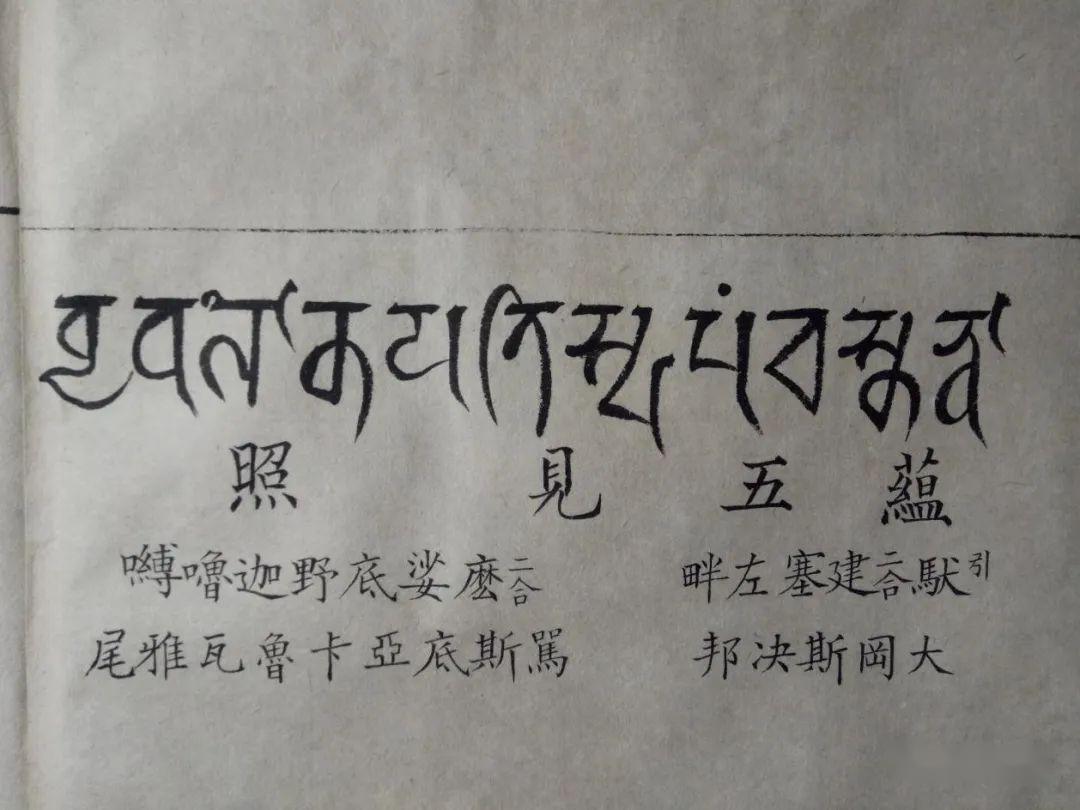 𑖪𑖿𑖧𑖪𑖩𑖺𑖎𑖧𑖝𑖰𑖭𑖿𑖦𑖢𑖽𑖓𑖭𑖿𑖎𑖡𑖿𑖠𑖯
照見五蘊
嚩嚕迦野底娑麼二合 畔左塞建二合馱引
尾雅瓦魯卡亞底斯罵 邦决斯岡大